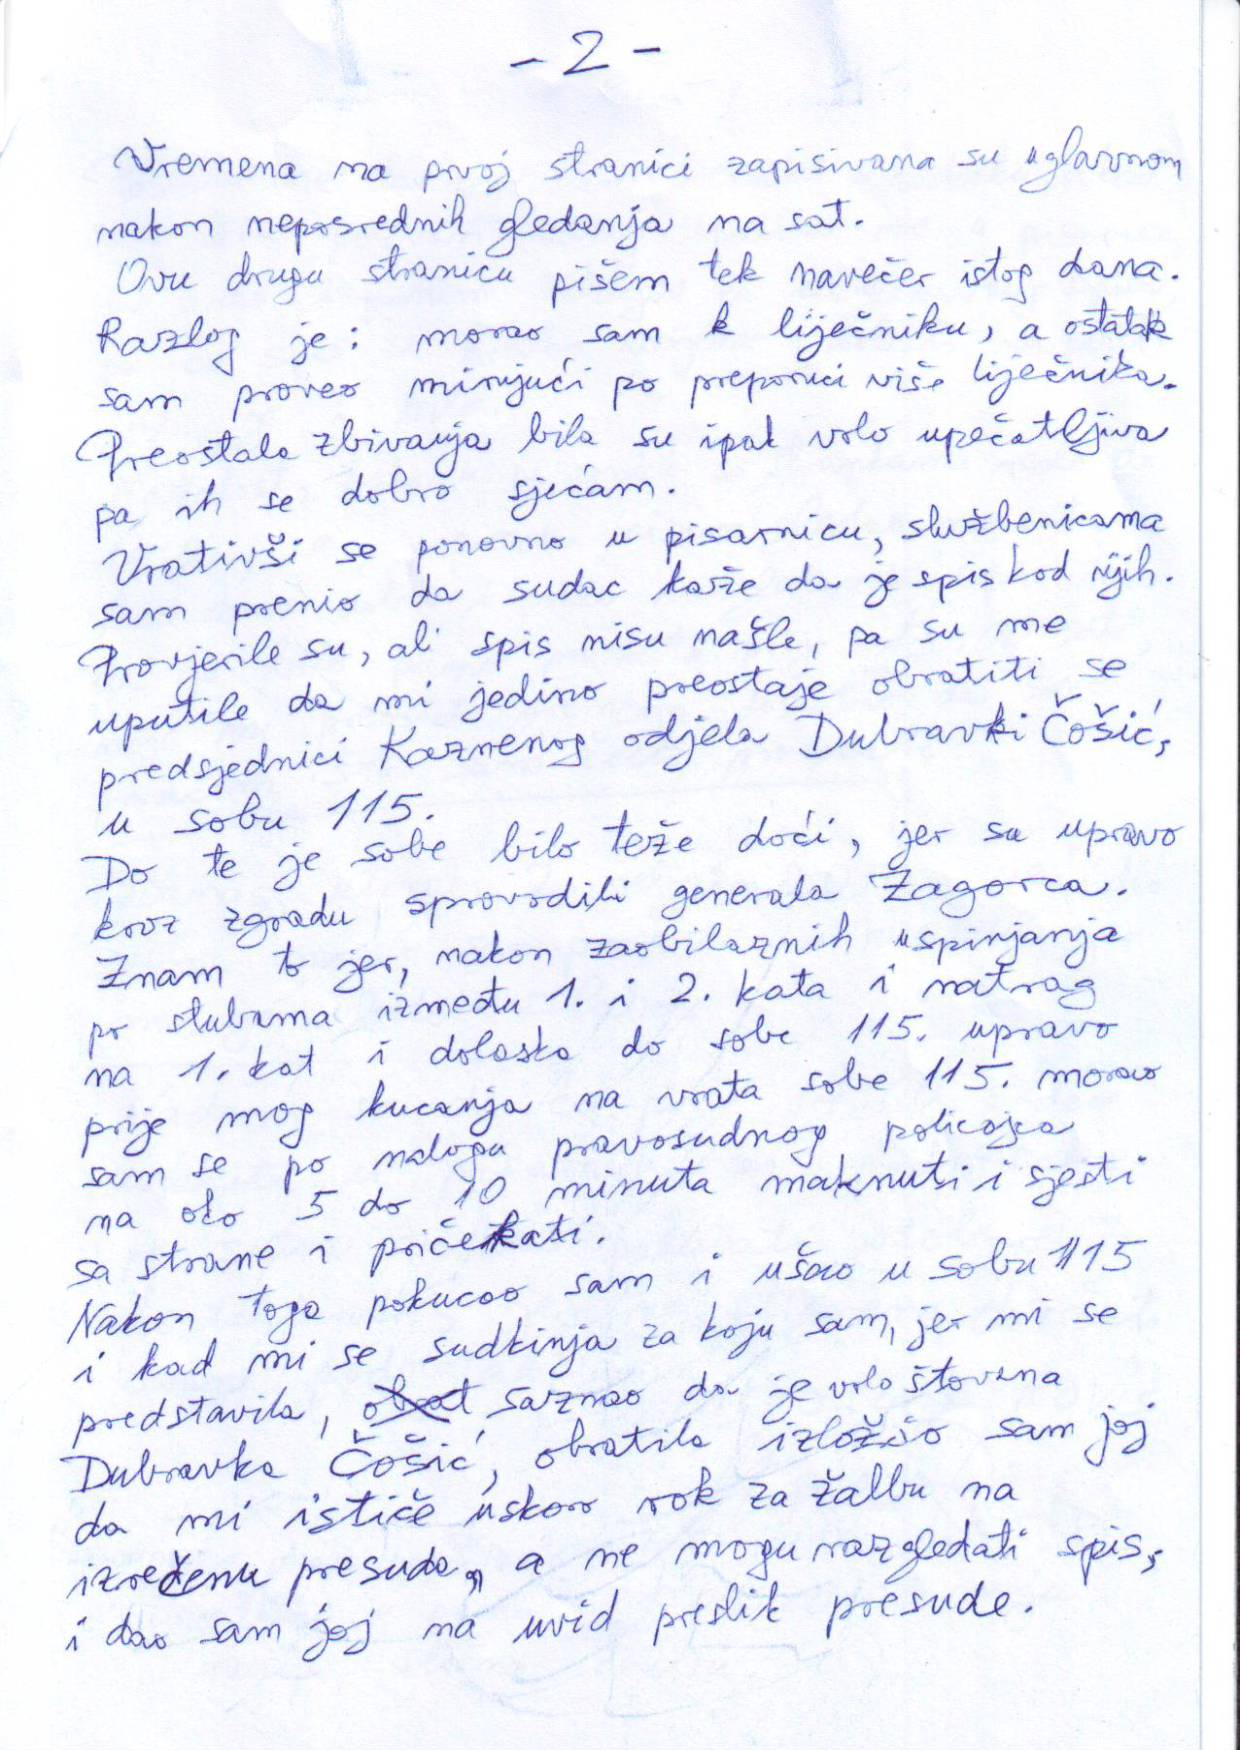 - 2 -
Vremena na prvoj stranici zapisivana su uglavnom
nakon neposrednih gledanja na sat.
Ovu drugu stranicu pišem tek navečer istog dana.
Razlog je: morao sam k liječniku, a ostatak
sam proveo mirujući po preporuci više liječnika.
Preostala zbivanja bila su ipak vrlo upečatljiva
pa ih se dobro sjećam.
Vrativši se ponovno u pisarnicu, službenicama
sam prenio da sudac kaže da je spis kod njih.
Provjerile su, ali spis nisu našle, pa su me
uputile da mi jedino preostaje obratiti se
predsjednici Kaznenog odjela Dubravki Čošić,
u sobu 115.
Do te je sobe bilo teže doći, jer su upravo
kroz zgradu sprovodili generala Zagorca.
Znam to jer, nakon zaobilaznih uspinjanja
po stubama između 1. i 2. kata i natrag
na 1. kat i dolaska do sobe 115. upravo
prije mog kucanja na vrata sobe 115. morao
sam se po nalogu pravosudnog policajca
na oko 5 do 10 minuta maknuti i sjesti
sa strane i pričekati.
Nakon toga pokucao sam i ušao u sobu 115
i kad mi se sudkinja za koju sam, jer mi se
predstavila, saznao da je vrlo štovana
Dubravka Čošić, obratila izložio sam joj
da mi ističe uskoro rok za žalbu na
izrečenu presudu, a ne mogu razgledati spis,
i dao sam joj na uvid preslik presude.